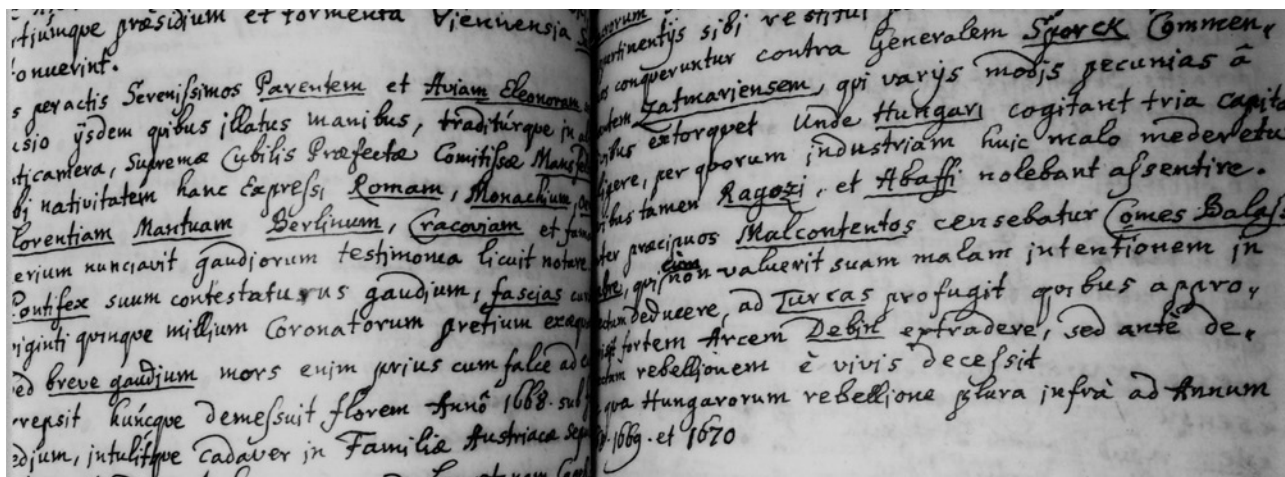 præsidium et tormenta Viennensia
onuerint.
s peractis Serenissimos Parentem et Aviam Eleonoram
ijsdem quibus illatus manibus, traditúrque in
ticamera, Supremæ Cubilis Præfectæ Comitissæ
nativitatem hanc Expressi Romam, Monachium,
lorentiam Mantuam Berlinum, Cracoviam et
erium nunciavit gaudiorum testimonia licuit notare
Pontifex suum contestaturus gaudium, fascias
iginti quinque millium Coronatorum pretium
ed breve gaudium mors enim prius cum falce ad
repsit huncque demessuit florem Annô 1668. sub
dium, intulitque cadaver in Familiæ Austriacæ
sibi
conqueruntur contra Generalem Sporck Commen,
Zatmariensem, qui varijs modis pecunias â
extorquet Unde Hungari cogitant tria capit
ligere, per quorum industriam huic malo mederetu
tamen Ragozi, et Abaffi nolebant assentire.
ter præcipuos Malcontentos censebatur Comes
qui cùm non valuerit suam malam intentionem in
deducere, ad Turcas profugit quibus appro,
fortem Arcem Debin extradere, sed antè de,
rebellionem è vivis decessit
qua Hungarorum rebellione plura infrà ad Annum
1669. et 1670